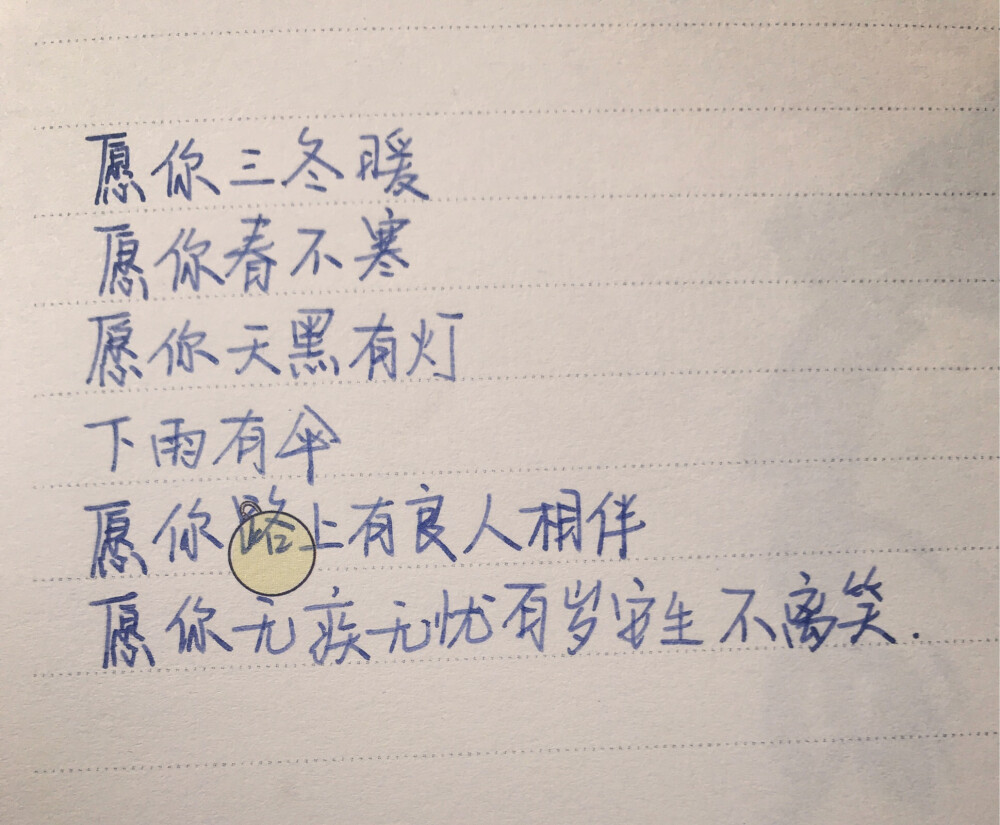 愿你三冬暖
愿你春不寒
愿你天黑有灯
下雨有伞
愿你路上有良人相伴
愿你无疾无忧百岁安生不离笑.